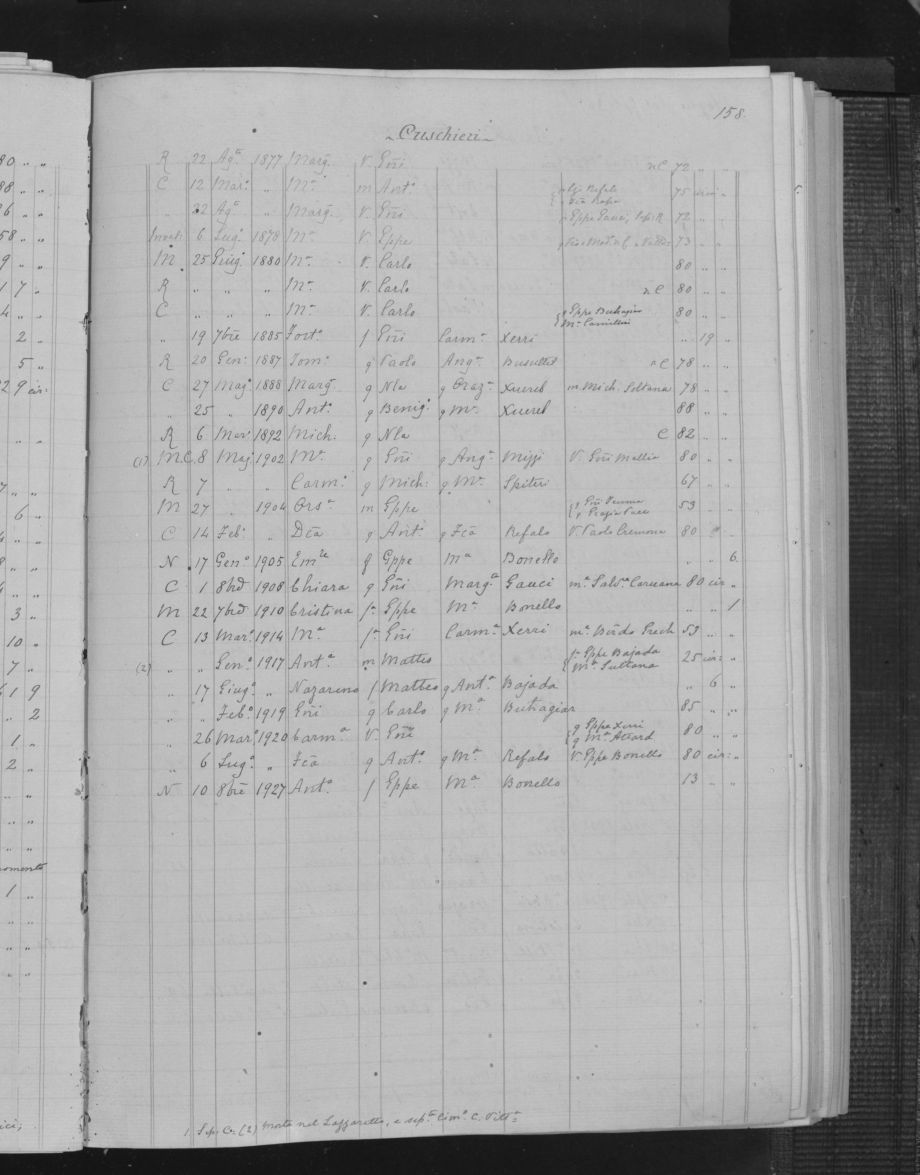 158.
Cuschieri
R 22 Agᵃ 1877 Margᵃ V. Gñi nC 72
C 12 Marᵒ „ Mᵃ m Antᵒ 75 cir: „
„ 22 Agᵃ „ Margᵃ V. Gñi 72 „ „
6 Lugᵒ 1878 Mᵃ V. Gppe 73 „ „
M 25 Giugᵒ 1880 Mᵃ V. Carlo 80 „ „
R „ „ „ Mᵃ V. Carlo nC 80 „ „
C „ „ „ Mᵃ V. Carlo Gppe Buhagiar Mᵃ Camilleri 80 „ „
„ 19 7bre 1885 Fortᵒ f Gñi Carmᵃ Xerri „ 19 „
R 20 Genᵒ 1887 Tomᵒ q Paolo Angᵃ Busuttil nC 78 „ „
C 27 Magᵒ 1888 Margᵃ q Nla q Grazᵃ Xuereb m. Mich: Sultana 78 „ „
„ 25 „ 1890 Antᵃ q Benigᵒ q Mᵃ Xuereb 88 „ „
R 6 Marᵒ 1892 Mich: q Nla C 82 „ „
(1) MC 8 Magᵒ 1902 Mᵃ q Gñi q Angᵃ Mizzi V. Gñi Mallia 80 „ „
R 7 „ „ Carmᵒ q Mich: q Mᵃ Spiteri 67 „ „
M 27 „ 1904 Orsᵃ m Gppe 53 „ „
C 14 Febᵒ „ Dc̃a q Antᵒ q Fc̃a Refalo V. Paolo Cremona 80 „ „
N 17 Genᵒ 1905 Emˡᵉ f Gppe Mᵃ Bonello „ „ 6
C 1 8bre 1908 Chiara q Gñi Margᵃ Gauci mᵃ Salvʳᵉ Caruana 80 cir „
M 22 7bre 1910 Cristina fᵃ Gppe Mᵃ Bonello „ „ 1
C 13 Marᵒ 1914 Mᵃ fᵃ Gñi Carmᵃ Xerri mᵃ Bndo Grech 53 „ „
(2) „ „ Genᵒ 1917 Antᵃ m Matteo fᵃ Gppe Bajada Mᵃ Sultana 25 cir: „
„ 17 Giugᵒ „ Nazareno f Matteo q Antᵃ Bajada „ 6 „
„ „ Febᵒ 1919 Gñi q Carlo q Mᵃ Buhagiar 85 „ „
„ 26 Marᵒ 1920 Carmᵃ V. Gñi q Gppe Xerri q Mᵃ Attard 80 „ „
„ 6 Lugᵒ „ Fc̃a q Antᵒ q Mᵃ Refalo V. Gppe Bonello 80 cir: „
N 10 8bre 1927 Antᵒ f Gppe Mᵃ Bonello 13 „ „
1. Sep: Cᵃ: (2) Morta nel Lazzaretto, e sepᵗᵃ Cimᵒ C. Vittᵃ